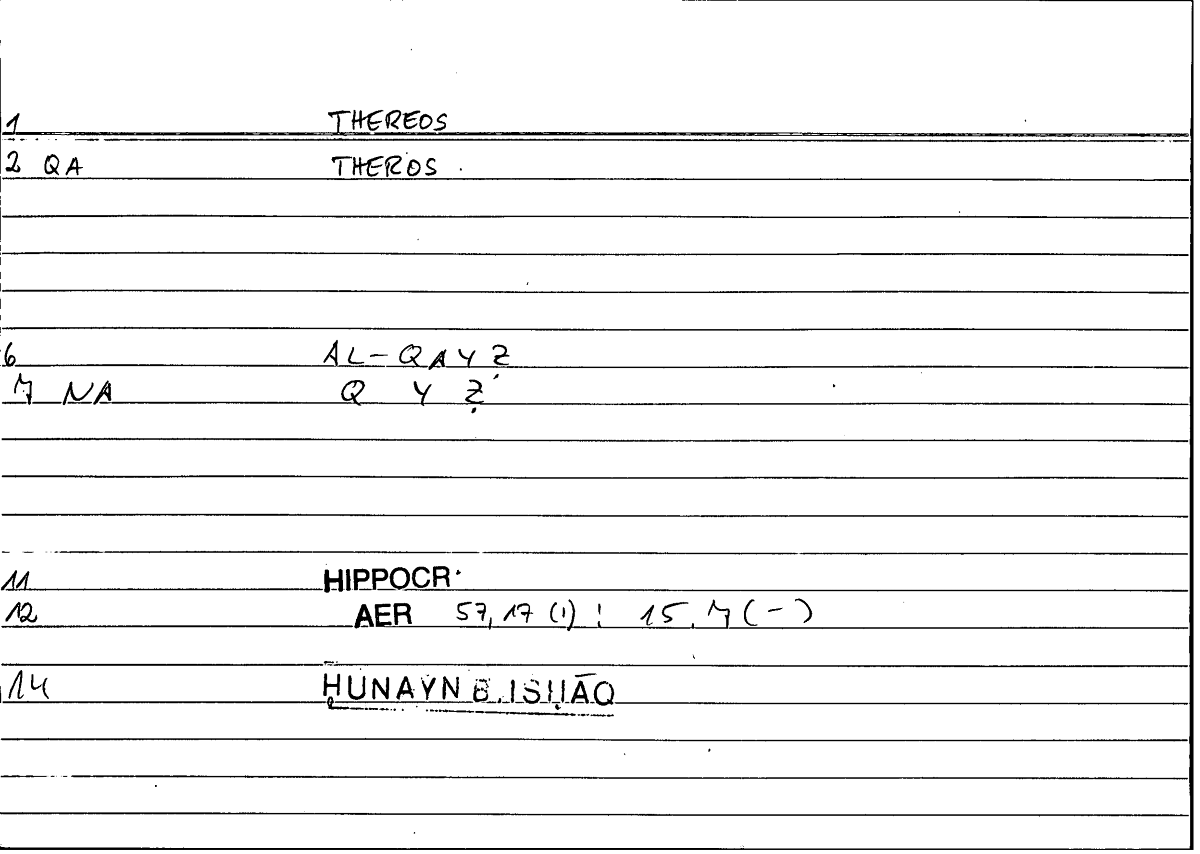 1 THEREOS
2 QA THEROS
6 AL-QAYẒ
7 NA Q Y Ẓ
11 HIPPOCR.
12 AER 57,17 (1) : 15,7 (-)
14 ḤUNAYN B. ISḤĀQ